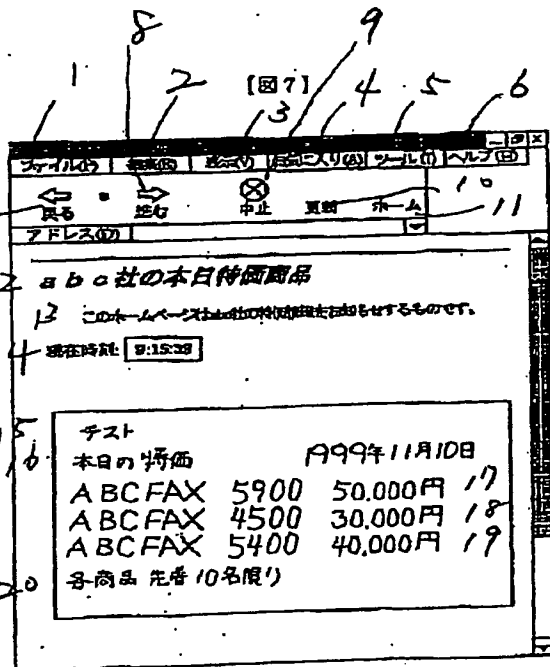 8
9
1
2
【図7】
3
4
5
6
ファイル(F) 編集(E) 表示(V) お気に入り(A) ツール(T) ヘルプ(H)
戻る 進む 中止 更新 ホーム
10
11
アドレス(D)
2 abc社の本日特価商品
13 このホームページはabc社の特価商品をお知らせするものです。
4 現在時刻: 9:15:38
15 テスト
16 本日の特価 1999年11月10日
ABCFAX 5900 50,000円 17
ABCFAX 4500 30,000円 18
ABCFAX 5400 40,000円 19
20 各商品 先着10名限り